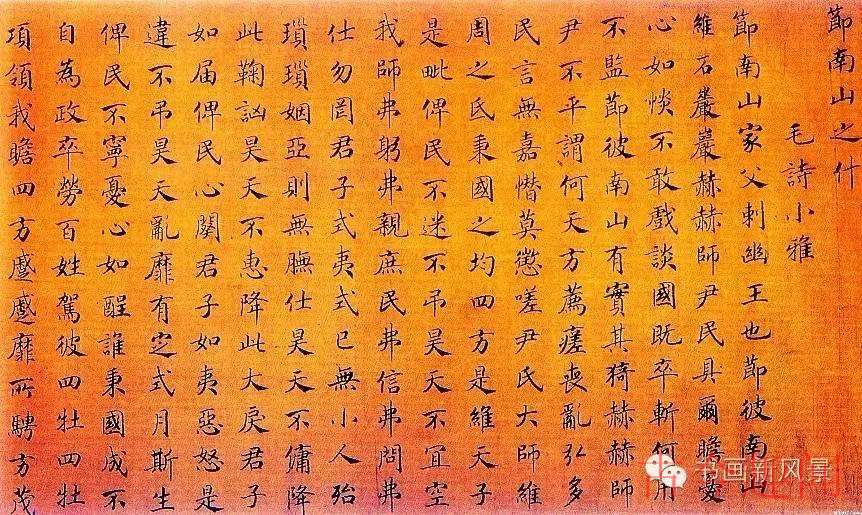 節南山之什
毛詩小雅
節南山家父刺幽王也節彼南山
維石巖巖赫赫師尹民具爾瞻憂
心如惔不敢戲談國既卒斬何用
不監節彼南山有實其猗赫赫師
尹不平謂何天方薦瘥喪亂弘多
民言無嘉憯莫懲嗟尹氏大師維
周之氐秉國之均四方是維天子
是毗俾民不迷不吊昊天不宜空
我師弗躬弗親庶民弗信弗問弗
仕勿罔君子式夷式已無小人殆
瑣瑣姻亞則無膴仕昊天不傭降
此鞠訩昊天不惠降此大戾君子
如届俾民心闋君子如夷惡怒是
違不吊昊天亂靡有定式月斯生
俾民不寧憂心如酲誰秉國成不
自為政卒勞百姓駕彼四牡四牡
項領我瞻四方蹙蹙靡所騁方茂
书画新风景